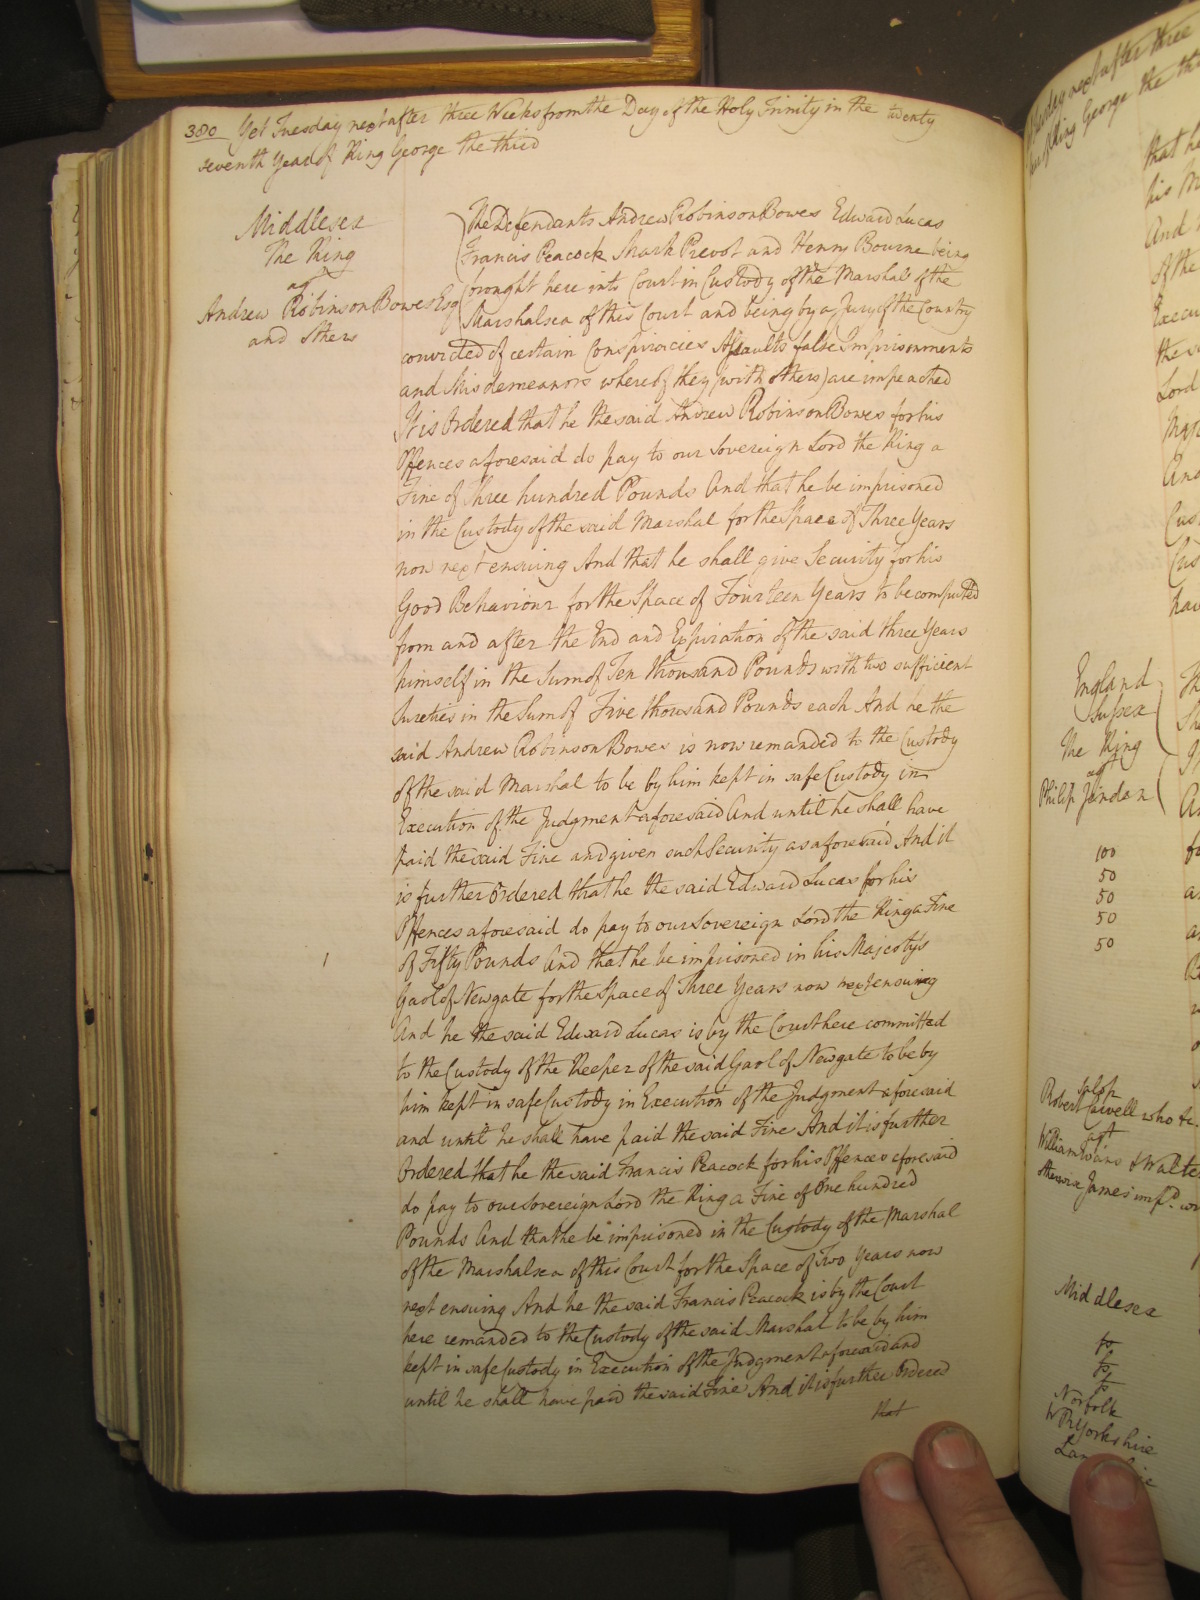 380 Yet Tuesday next after three Weeks from the Day of the Holy Trinity in the twenty
seventh Year of King George the third
Middlesex
The King
agt
Andrew Robinson Bowes Esq
and others
The Defendants Andrew Robinson Bowes Edward Lucas
Francis Peacock Mark Prevot and Henry Bourne being
brought here into Court in Custody of the Marshal of the
Marshalsea of this Court and being by a Jury of the Country
convicted of certain Conspiracies Assaults false Imprisonments
and Misdemeanors whereof they (with others) are impeached
It is Ordered that he the said Andrew Robinson Bowes for his
Offences aforesaid do pay to our Sovereign Lord the King a
Fine of Three hundred Pounds And that he be imprisoned
in the Custody of the said Marshal for the Space of Three Years
now next ensuing And that he shall give Security for his
Good Behaviour for the Space of Fourteen Years to be computed
from and after the End and Expiration of the said three Years
himself in the Sum of Ten thousand Pounds with two sufficient
Sureties in the Sum of Five thousand Pounds each And he the
said Andrew Robinson Bowes is now remanded to the Custody
of the said Marshal to be by him kept in safe Custody in
Execution of the Judgment aforesaid And until he shall have
paid the said Fine and given such Security as aforesaid And it
is further Ordered that he the said Edward Lucas for his
Offences aforesaid do pay to our Sovereign Lord the King a Fine
of Fifty Pounds And that he be imprisoned in his Majesty's
Gaol of Newgate for the Space of Three Years now next ensuing
And he the said Edward Lucas is by the Court here committed
to the Custody of the Keeper of the said Gaol of Newgate to be by
him kept in safe Custody in Execution of the Judgment aforesaid
and until he shall have paid the said Fine And it is further
Ordered that he the said Francis Peacock for his Offences aforesaid
do pay to our Sovereign Lord the King a Fine of One hundred
Pounds And that he be imprisoned in the Custody of the Marshal
of the Marshalsea of this Court for the Space of Two Years now
next ensuing And he the said Francis Peacock is by the Court
here remanded to the Custody of the said Marshal to be by him
kept in safe Custody in Execution of the Judgment aforesaid and
until he shall have paid the said Fine And it is further Ordered
that
Tuesday next after three
King George the
that he
his
And
of the
the
Lord
And
hav
England
Sussex
The King
agt
Philip
100
50
50
50
50
Salop
Robert who
agt
William Evans & Walter
otherwise James
Middlesex
to
to
to
Norfolk
WR Yorkshire